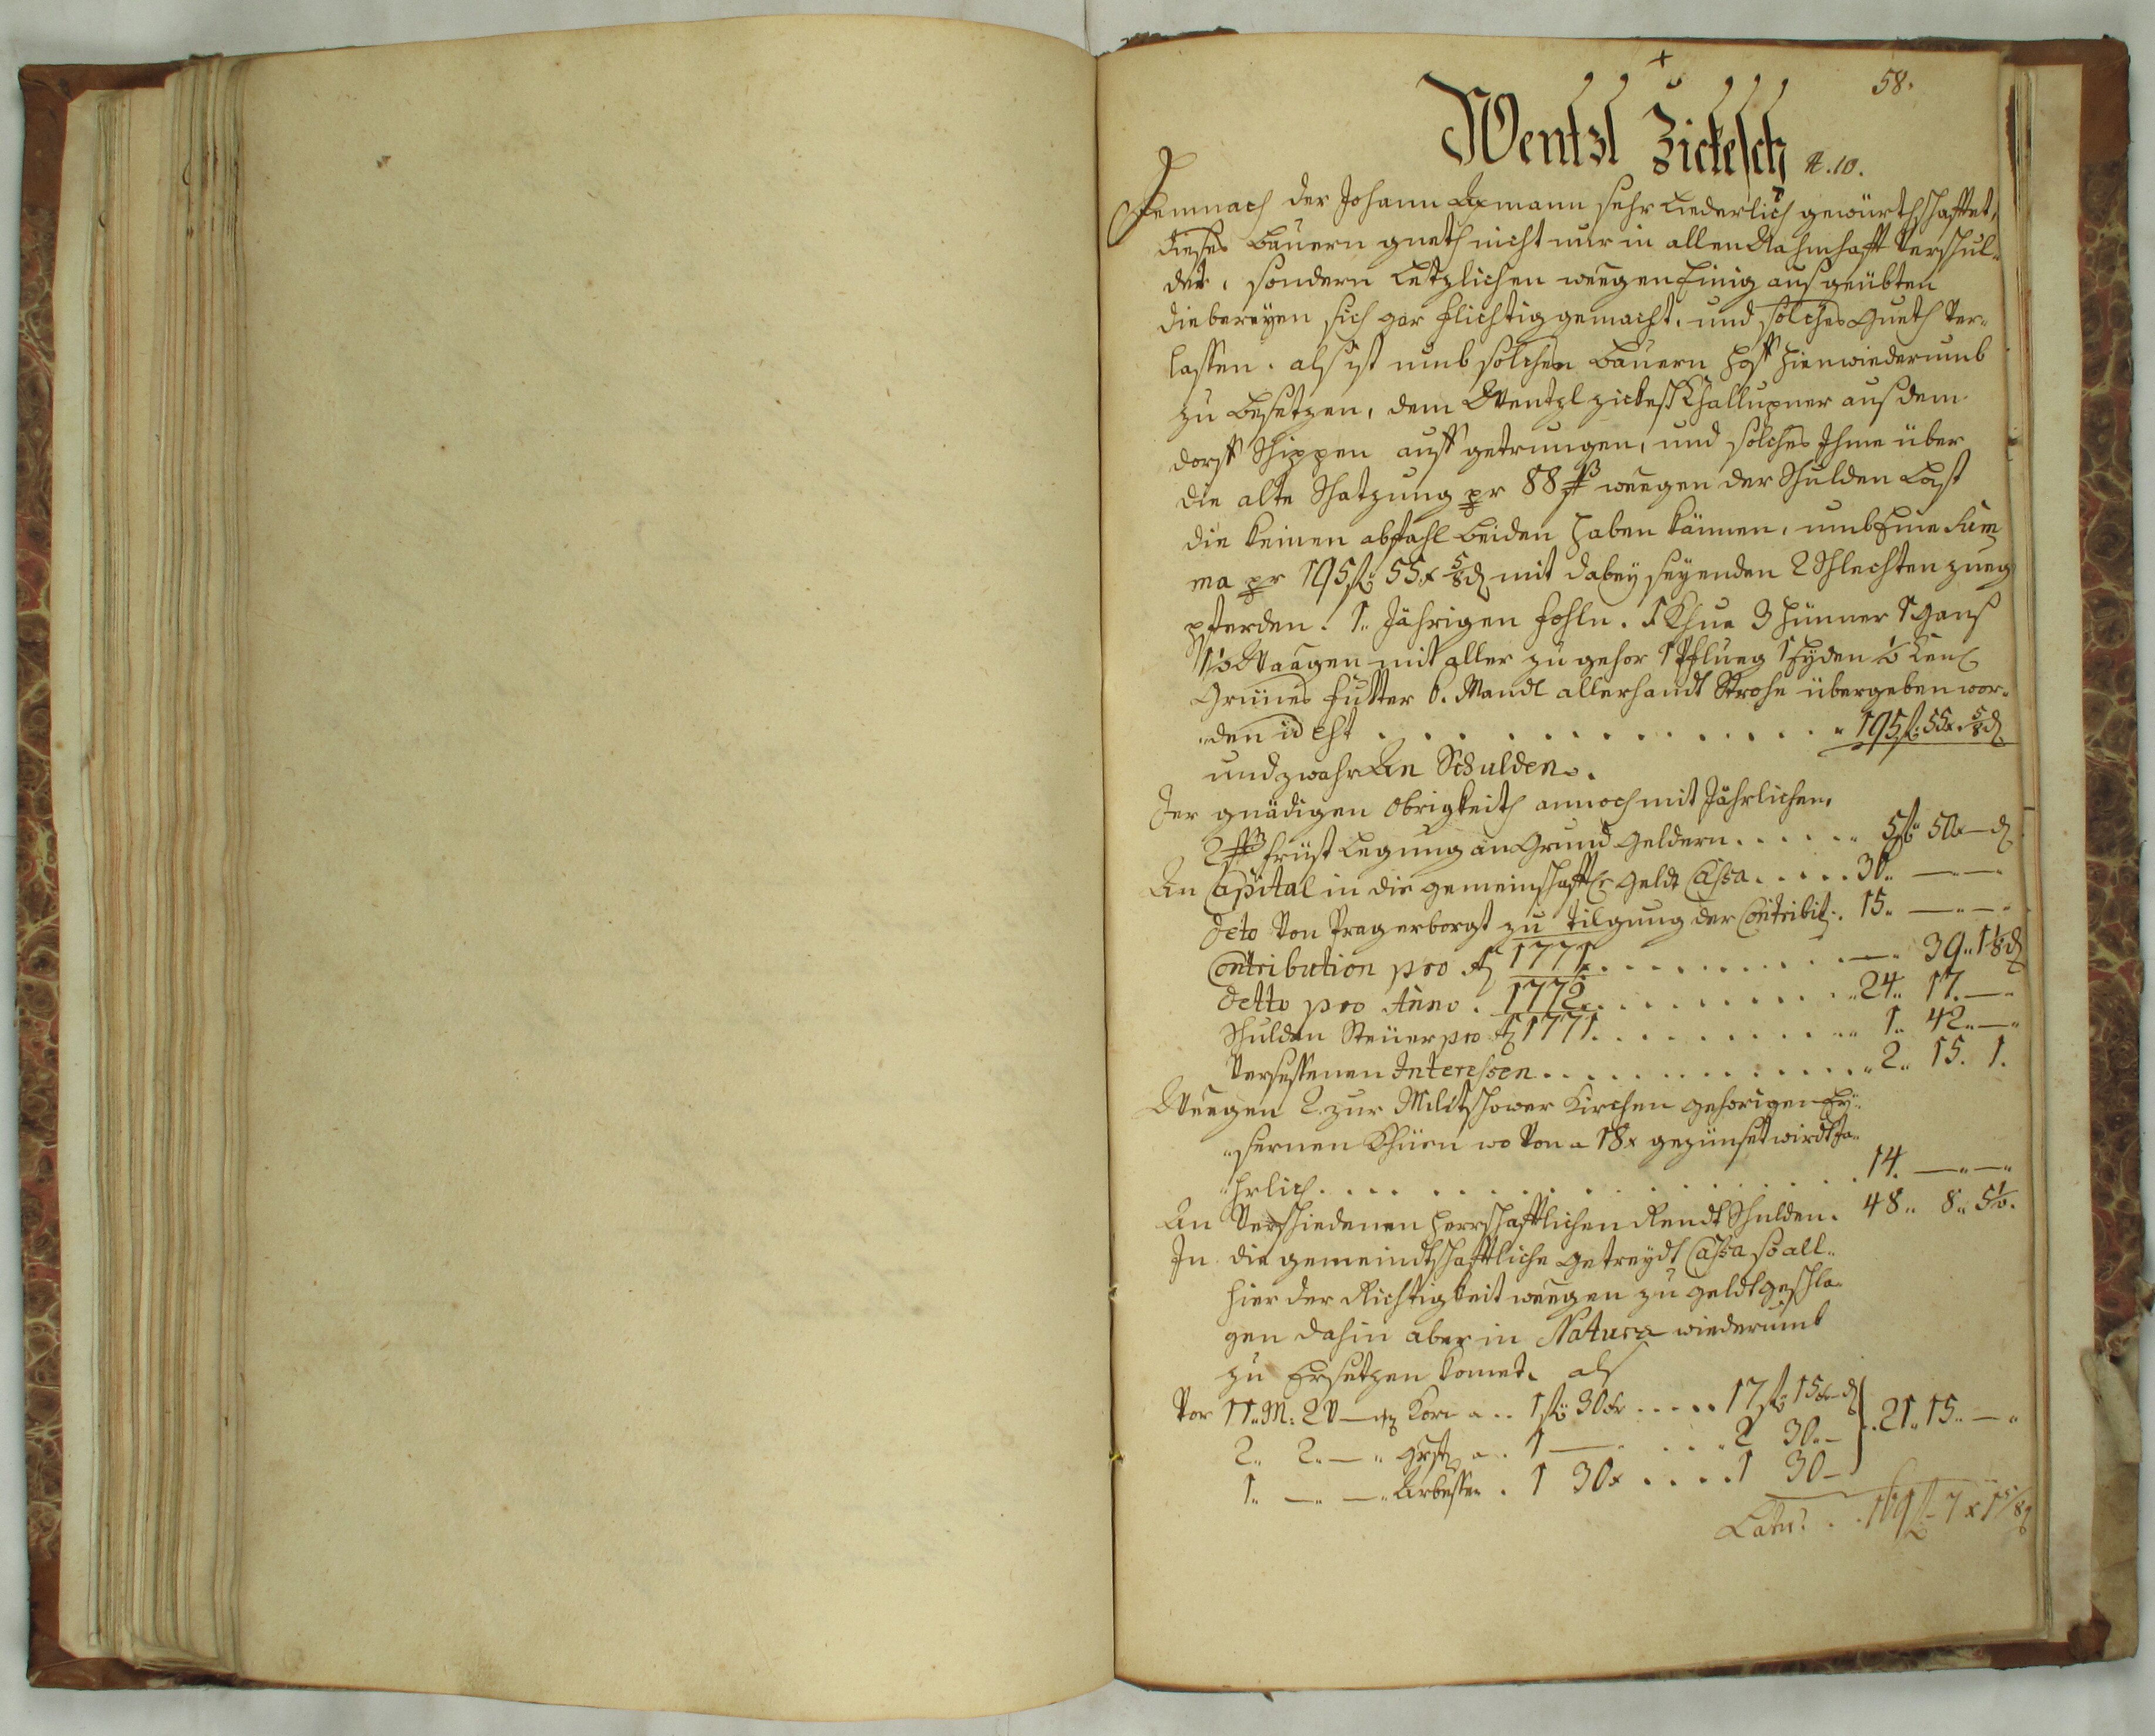 58.
Wentzl Zickesch N. 10.
Demnach der Johann Axmann sehr Liederlich gewürthschafftet,
dieses Bauern gueth nicht nur in allen Nahmhafft Verschul-
det, sondern Letzlichen weegen Einig ausgeübten
diebereyen sich gar flichtig gemacht, und solches Gueth Ver-
lassen. als ist umb solchen Bauern Hoff hinwiederumb
zu besetzen, dem Wentzl Zickesch Challupner aus dem
dorff Schippen auff getrungen, und solches Ihme über
die alte Schatzung pr 88 ß weegen der Schulden Last
die keinen abfahl Leiden haben können, umb Eine Sum
ma pr 195 f 55 x 5/8 d mit dabey seyenden 2 Schlechten zueg
pferden. 1. Jährigen fohln. 1 Khue 3 Hünner 1 Ganß
1/2 Waagen mit aller zu gehor 1 Pflueg 1 Eyden
Grünes Futter 6. Mandl allerhandt Strohe übergeben wor-
den id est . . . 195 f 55 x 5/8 d
und zwahr An Schulden.
Der gnädigen Obrigkeith annoch mit Jährlichen
2 ß früst Legung an Grund Geldern . . . 5 f 50 x — d
An Capital in die gemeinschafftl Geldt Cassa . . . 30 " — " —
deto Von Prag erborgt zu Tilgung der Contribu. 15 " — " —
Contribution pro A 1771 . . . — " 39 " 1 1/8 d
detto pro Anno. 1772 . . . 24 " 17 —
Schulden Steüer pro A 1771 . . . 1 " 42 " —
Versessenen Interessen . . . 2 " 15. 1.
Weegen 2. zur Militschower Kirchen gehörigen Ey-
sernen Khüen wo Von a 18 x gezünset wird Jä-
hrlich . . . 14. — " —
An Verschiedenen Herrschafftlichen Rendt Schulden. 48 " 8 " 5 1/2.
In die gemeindtschafftliche Getreydt Cassa so all-
hier der Richtigkeit weegen zu geldt geschla-
gen dahin aber in Natura wiederumb
zu Ersetzen komet. als
Vor 11 " M: 2 V — Korn a . . 1 f 30 x . . . 17 f 15 x — d } 21 " 15 " —
2 " 2 " — " Gerst a . . 1 — . . . 2 30 " —
1 " — " — " Arbessen . 1 30 x . . . 1 30 —
Latus . . 161 f 7 x 1 5/8 d